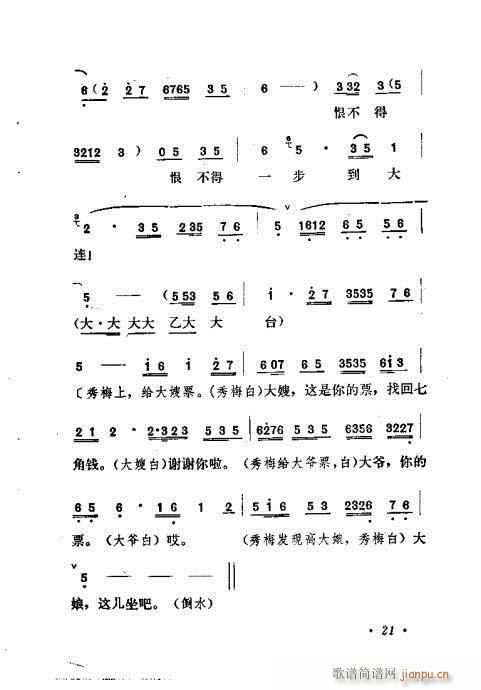 6 (2 27 6765 35 | 6 — — ) | 332 3 (5 |
恨不得
3212 3 ) 05 35 | 6 5 · 35 1 |
恨 不得 一 步 到 大
2 · 35 235 76 | 5 1612 65 56 |
连!
5 — — (553 56 | i · 27 3535 76 |
(大·大 大大 乙大 大 台)
5 — — i6 i 27 | 607 65 3535 6i3 |
〔秀梅上，给大嫂票。(秀梅白)大嫂，这是你的票，找回七
21 2 · 2·323 535 | 6276 535 6356 3227 |
角钱。(大嫂白)谢谢你啦。(秀梅给大爷票，白)大爷，你的
65 6 · 16 1 2 | 5i6 535 2326 76 |
票。(大爷白)哎。 (秀梅发现高大娘，秀梅白)大
5 — — — ‖
娘，这儿坐吧。(倒水)
· 21 ·
歌谱简谱网
jianpu.cn